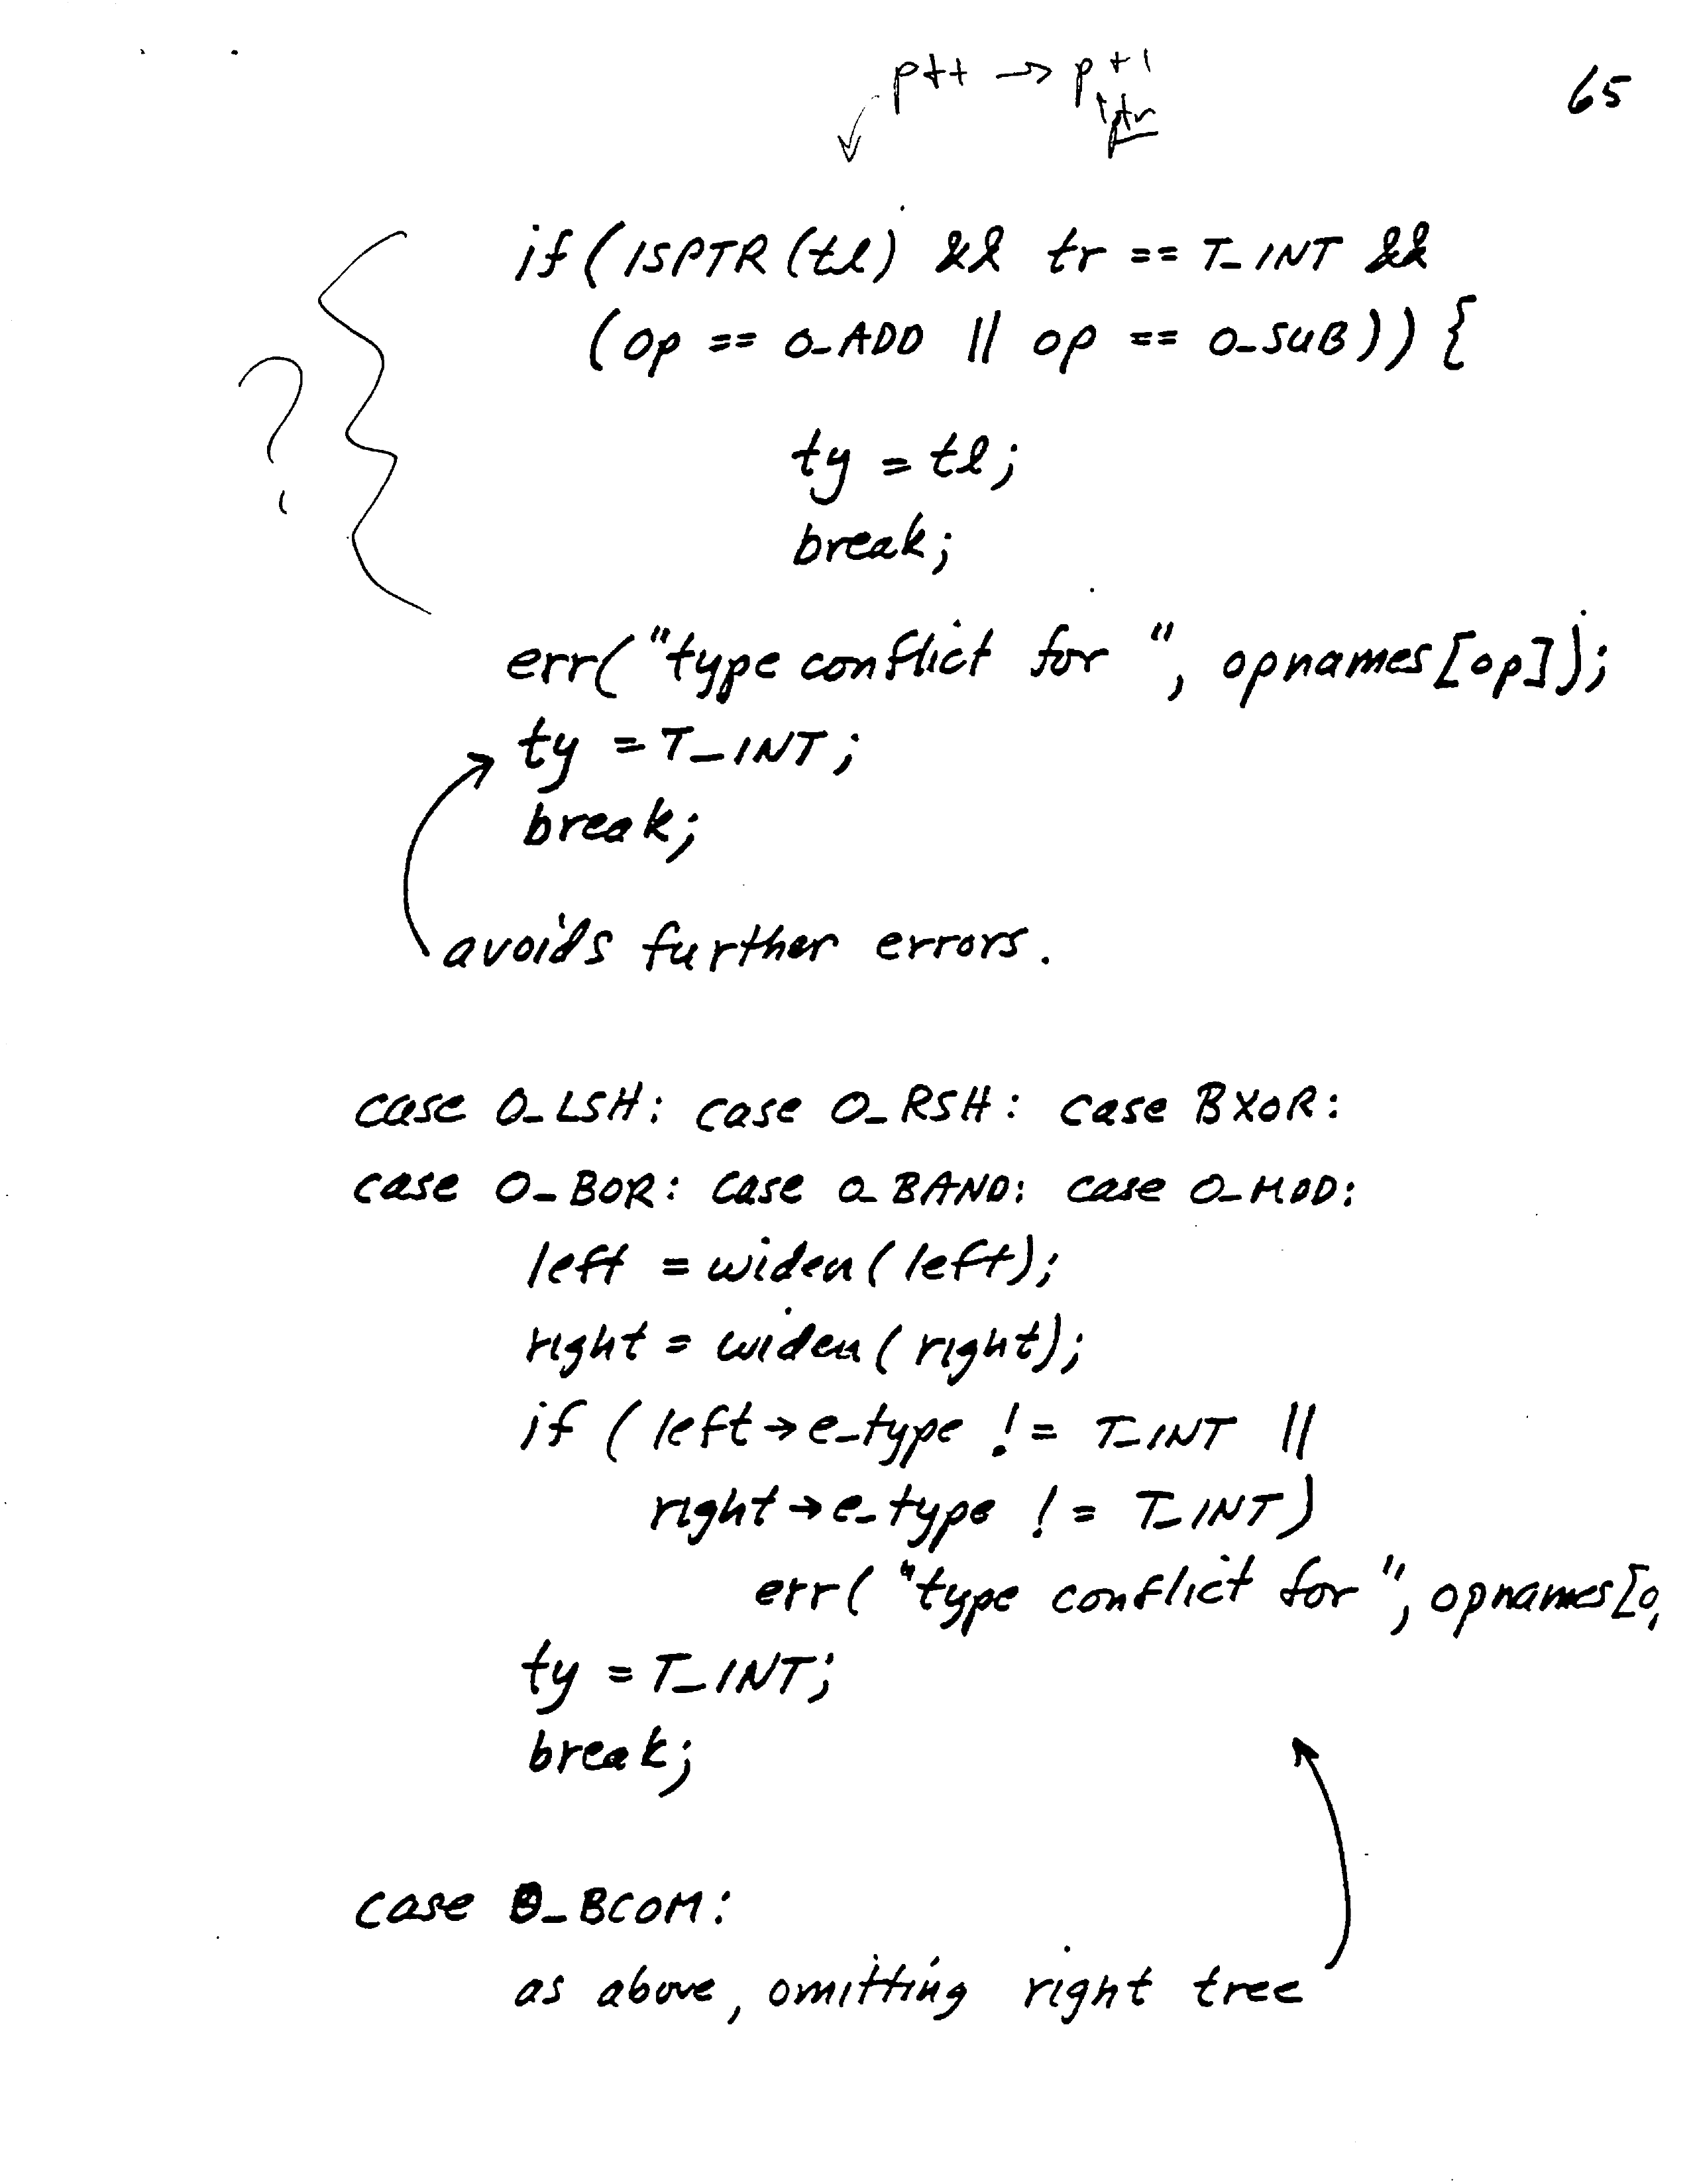 p++ → p+1
65
ptr
if (ISPTR(tl) && tr == T_INT &&
(op == O_ADD || op == O_SUB)) {
?
ty = tl;
break;
err("type conflict for ", opnames[op]);
ty = T_INT;
break;
avoids further errors.
case O_LSH: case O_RSH: case BXOR:
case O_BOR: case O_BAND: case O_MOD:
left = widen(left);
right = widen(right);
if (left→e_type != T_INT ||
right→e_type != T_INT)
err("type conflict for ", opnames[o
ty = T_INT;
break;
case O_BCOM:
as above, omitting right tree